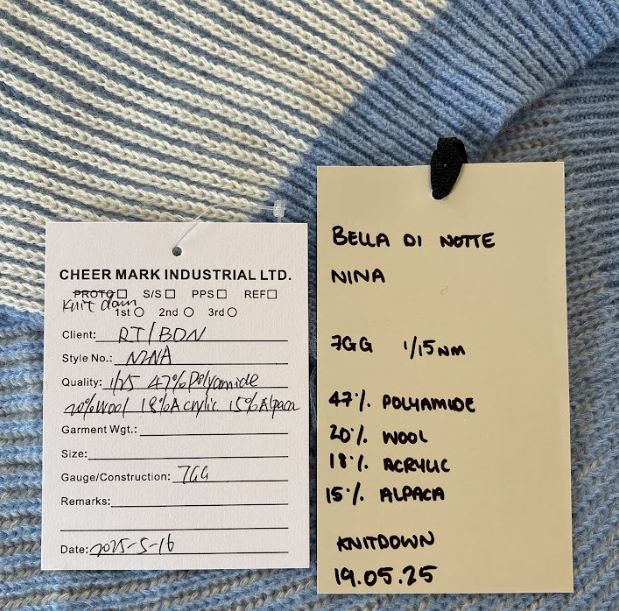 CHEER MARK INDUSTRIAL LTD.
PROTO☐ S/S☐ PPS☐ REF☐
Knit down
1st○ 2nd○ 3rd○
Client: RT/BDN
Style No.: NINA
Quality: 1/15 47%Polyamide
20%Wool 18%Acrylic 15%Alpaca
Garment Wgt.:
Size:
Gauge/Construction: 7GG
Remarks:
Date: 2025-5-16
BELLA DI NOTTE
NINA
7GG 1/15NM
47% POLYAMIDE
20% WOOL
18% ACRYLIC
15% ALPACA
KNITDOWN
19.05.25